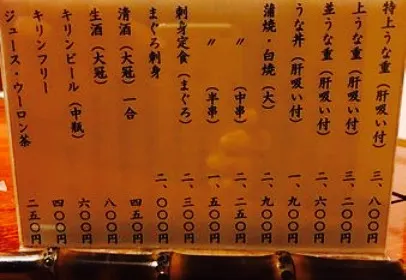 特上うな重（肝吸い付） 三、八〇〇円
上うな重（肝吸い付） 三、二〇〇円
並うな重（肝吸い付） 二、六〇〇円
うな丼（肝吸い付） 一、九〇〇円
蒲焼・白焼（大） 二、九〇〇円
〃 （中串） 二、二五〇円
〃 （半串） 一、五〇〇円
刺身定食（まぐろ） 二、三〇〇円
まぐろ刺身 二、〇〇〇円
清酒（大冠）一合 四五〇円
生酒（大冠） 八〇〇円
キリンビール（中瓶） 六〇〇円
キリンフリー 四〇〇円
ジュース・ウーロン茶 二五〇円